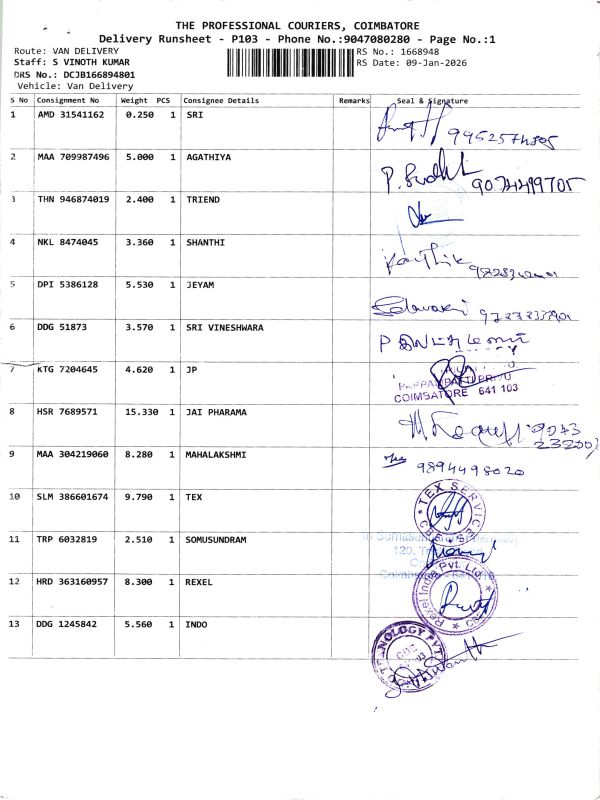 THE PROFESSIONAL COURIERS, COIMBATORE
Delivery Runsheet - P103 - Phone No.:9047080280 - Page No.:1
Route: VAN DELIVERY
RS No.: 1668948
Staff: S VINOTH KUMAR
RS Date: 09-Jan-2026
DRS No.: DCJB166894801
Vehicle: Van Delivery
S No Consignment No Weight PCS Consignee Details Remarks Seal & Signature
1 AMD 31541162 0.250 1 SRI
2 MAA 709987496 5.000 1 AGATHIYA
3 THN 946874019 2.400 1 TRIEND
4 NKL 8474045 3.360 1 SHANTHI
Karthik
5 DPI 5386128 5.530 1 JEYAM
6 DDG 51873 3.570 1 SRI VINESHWARA
7 KTG 7204645 4.620 1 JP
COIMBATORE 641 103
8 HSR 7689571 15.330 1 JAI PHARAMA
9 MAA 304219060 8.280 1 MAHALAKSHMI
9894498020
10 SLM 386601674 9.790 1 TEX
TEX SERVICE
11 TRP 6032819 2.510 1 SOMUSUNDRAM
120,
12 HRD 363160957 8.300 1 REXEL
Rexel India Pvt. Ltd.
13 DDG 1245842 5.560 1 INDO